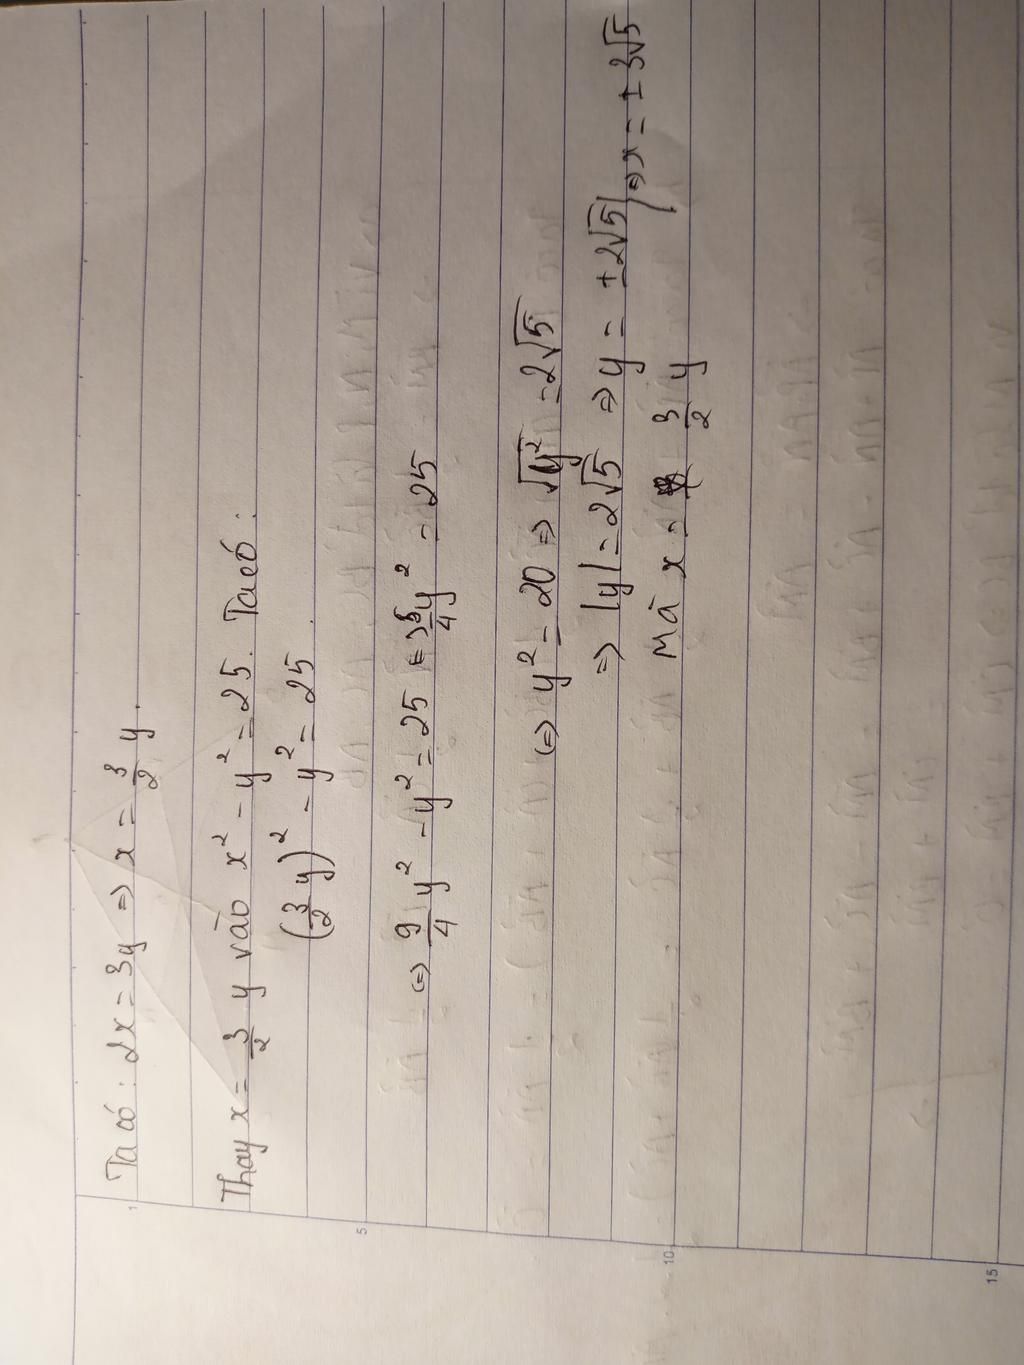 Ta có : 2x = 3y => x = 3/2 y.
Thay x = 3/2 y vào x² - y² = 25. Ta có :
(3/2 y)² - y² = 25
<=> 9/4 y² - y² = 25 <=> 5/4 y² = 25
<=> y² = 20 => √y² = 2√5
=> |y| = 2√5 => y = ±2√5
Mà x = 3/2 y
=> x = ± 3√5
1
5
10
15